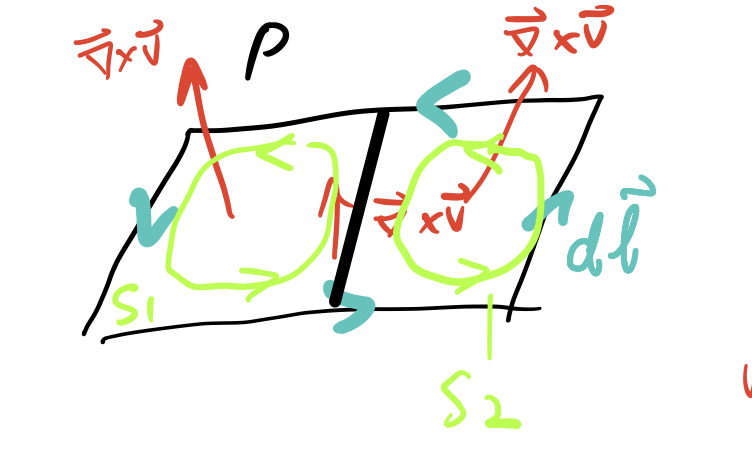 ∇⃗×v⃗
P
∇⃗×v⃗
∇⃗×v⃗
dl⃗
S1
S2